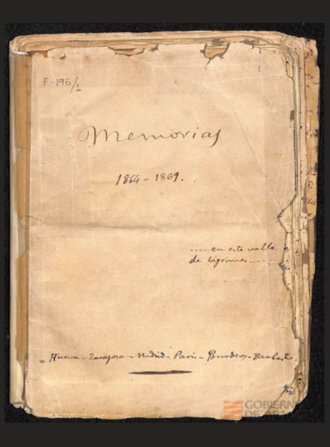 F-195/1
Memorias
1864-1869.
.....en este valle
de lágrimas......
- Huesca - Zaragoza - Madrid - Paris - Burdeos - Barbastro
GOBIERN